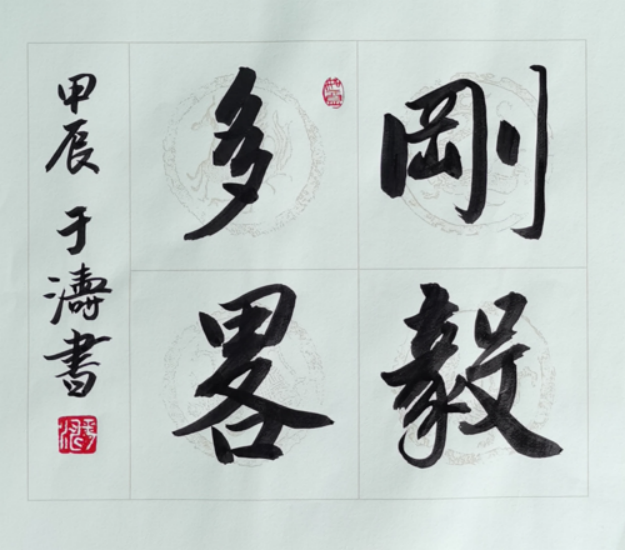 剛毅
多畧
甲辰于濤書